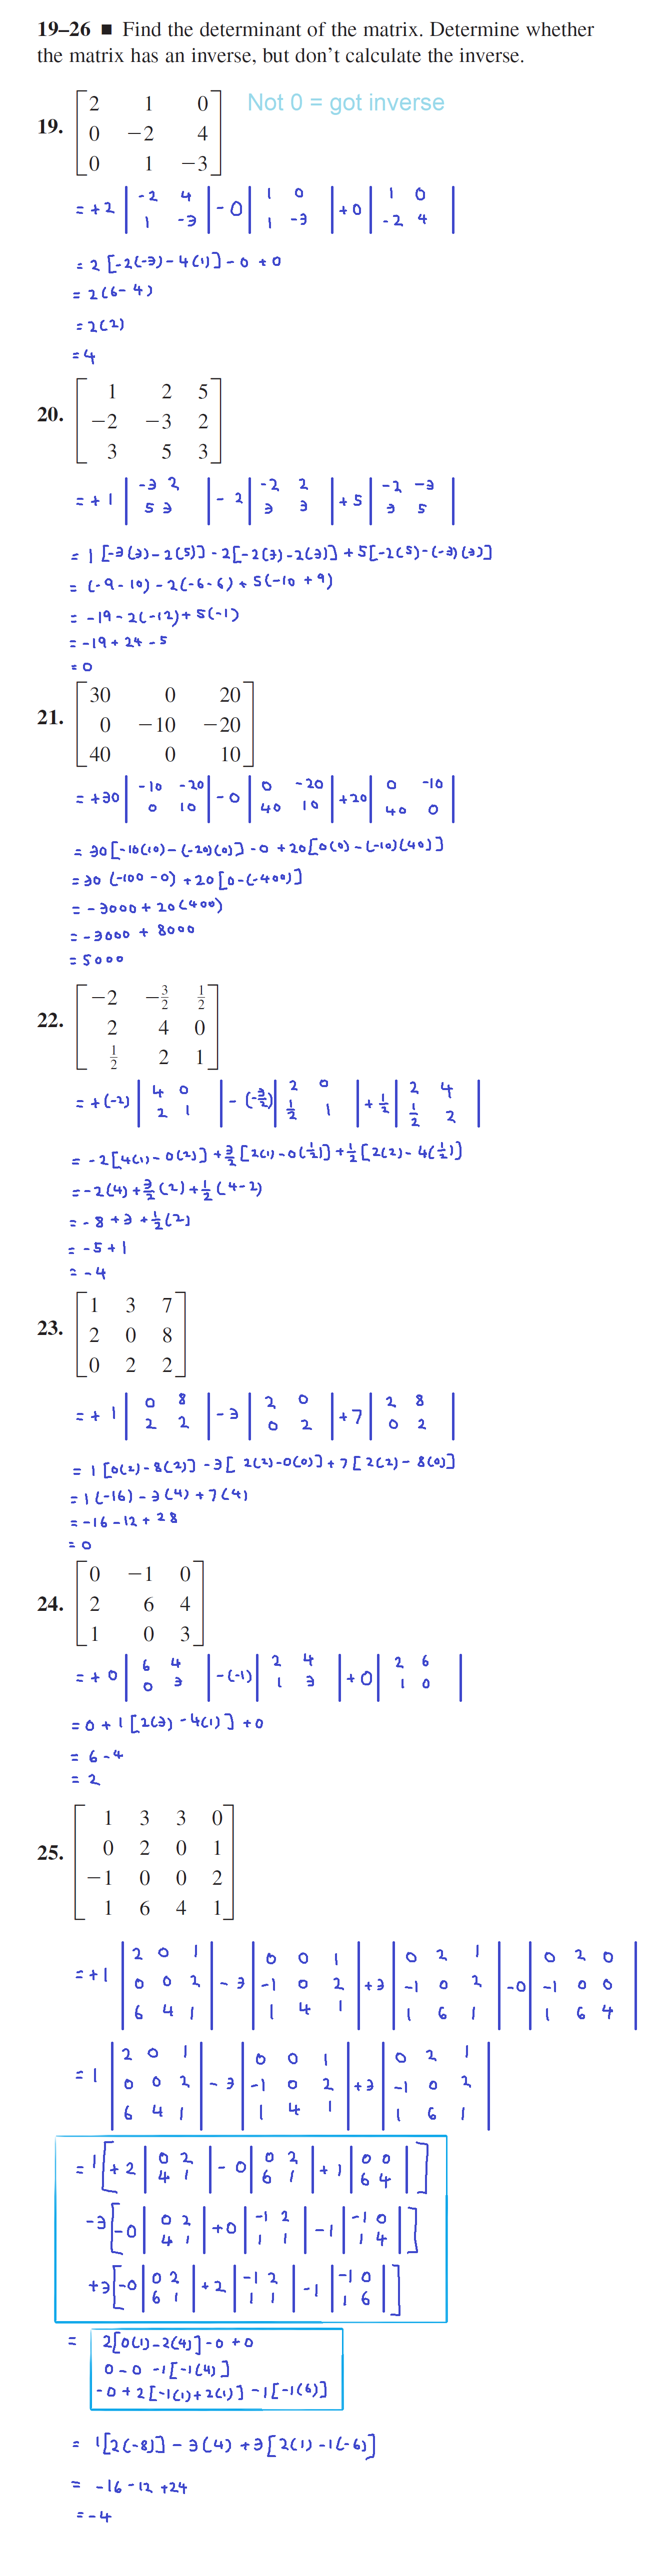 19–26 ■ Find the determinant of the matrix. Determine whether
the matrix has an inverse, but don't calculate the inverse.
Not 0 = got inverse
19. [2 1 0]
[0 −2 4]
[0 1 −3]
= +2 |-2 4| - 0 |1 0| + 0 |1 0|
|1 -3| |1 -3| |-2 4|
= 2 [-2(-3) - 4(1)] - 0 + 0
= 2(6-4)
= 2(2)
= 4
20. [1 2 5]
[−2 −3 2]
[3 5 3]
= +1 |-3 2| - 2 |-2 2| + 5 |-2 -3|
|5 3| |3 3| |3 5|
= 1 [-3(3) - 2(5)] - 2[-2(3) - 2(3)] + 5[-2(5) - (-3)(3)]
= (-9 - 10) - 2(-6-6) + 5(-10 + 9)
= -19 - 2(-12) + 5(-1)
= -19 + 24 - 5
= 0
21. [30 0 20]
[0 −10 −20]
[40 0 10]
= +30 |-10 -20| - 0 |0 -20| + 20 |0 -10|
|0 10| |40 10| |40 0|
= 30[-10(10) - (-20)(0)] - 0 + 20[0(0) - (-10)(40)]
= 30 (-100 - 0) + 20[0-(-400)]
= -3000 + 20(400)
= -3000 + 8000
= 5000
22. [−2 −3/2 1/2]
[2 4 0]
[1/2 2 1]
= +(-2) |4 0| - (-3/2) |2 0| + 1/2 |2 4|
|2 1| |1/2 1| |1/2 2|
= -2[4(1) - 0(2)] + 3/2 [2(1) - 0(1/2)] + 1/2 [2(2) - 4(1/2)]
= -2(4) + 3/2 (2) + 1/2 (4-2)
= -8 + 3 + 1/2 (2)
= -5 + 1
= -4
23. [1 3 7]
[2 0 8]
[0 2 2]
= +1 |0 8| - 3 |2 0| + 7 |2 8|
|2 2| |0 2| |0 2|
= 1 [0(2) - 8(2)] - 3[2(2) - 0(0)] + 7[2(2) - 8(0)]
= 1(-16) - 3(4) + 7(4)
= -16 - 12 + 28
= 0
24. [0 −1 0]
[2 6 4]
[1 0 3]
= +0 |6 4| - (-1) |2 4| + 0 |2 6|
|0 3| |1 3| |1 0|
= 0 + 1 [2(3) - 4(1)] + 0
= 6-4
= 2
25. [1 3 3 0]
[0 2 0 1]
[−1 0 0 2]
[1 6 4 1]
= +1 |2 0 1| - 3 |0 0 1| + 3 |0 2 1| - 0 |0 2 0|
|0 0 2| |-1 0 2| |-1 0 2| |-1 0 0|
|6 4 1| |1 4 1| |1 6 1| |1 6 4|
= 1 |2 0 1| - 3 |0 0 1| + 3 |0 2 1|
|0 0 2| |-1 0 2| |-1 0 2|
|6 4 1| |1 4 1| |1 6 1|
= 1 [+2 |0 2| - 0 |0 2| + 1 |0 0|]
|4 1| |6 1| |6 4|
-3 [-0 |0 2| + 0 |-1 2| - 1 |-1 0|]
|4 1| |1 1| |1 4|
+3 [-0 |0 2| + 2 |-1 2| - 1 |-1 0|]
|6 1| |1 1| |1 6|
= 2[0(1) - 2(4)] - 0 + 0
0 - 0 - 1[-1(4)]
-0 + 2[-1(1) + 2(1)] - 1[-1(6)]
= 1[2(-8)] - 3(4) + 3[2(1) - 1(-6)]
= -16 - 12 + 24
= -4